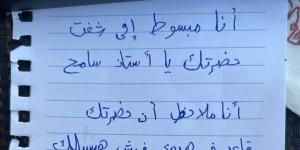 أنا مبسوط إني شفت
حضرتك يا أستاذ سامح
أنا ملاحظ أن حضرتك
قاعد في